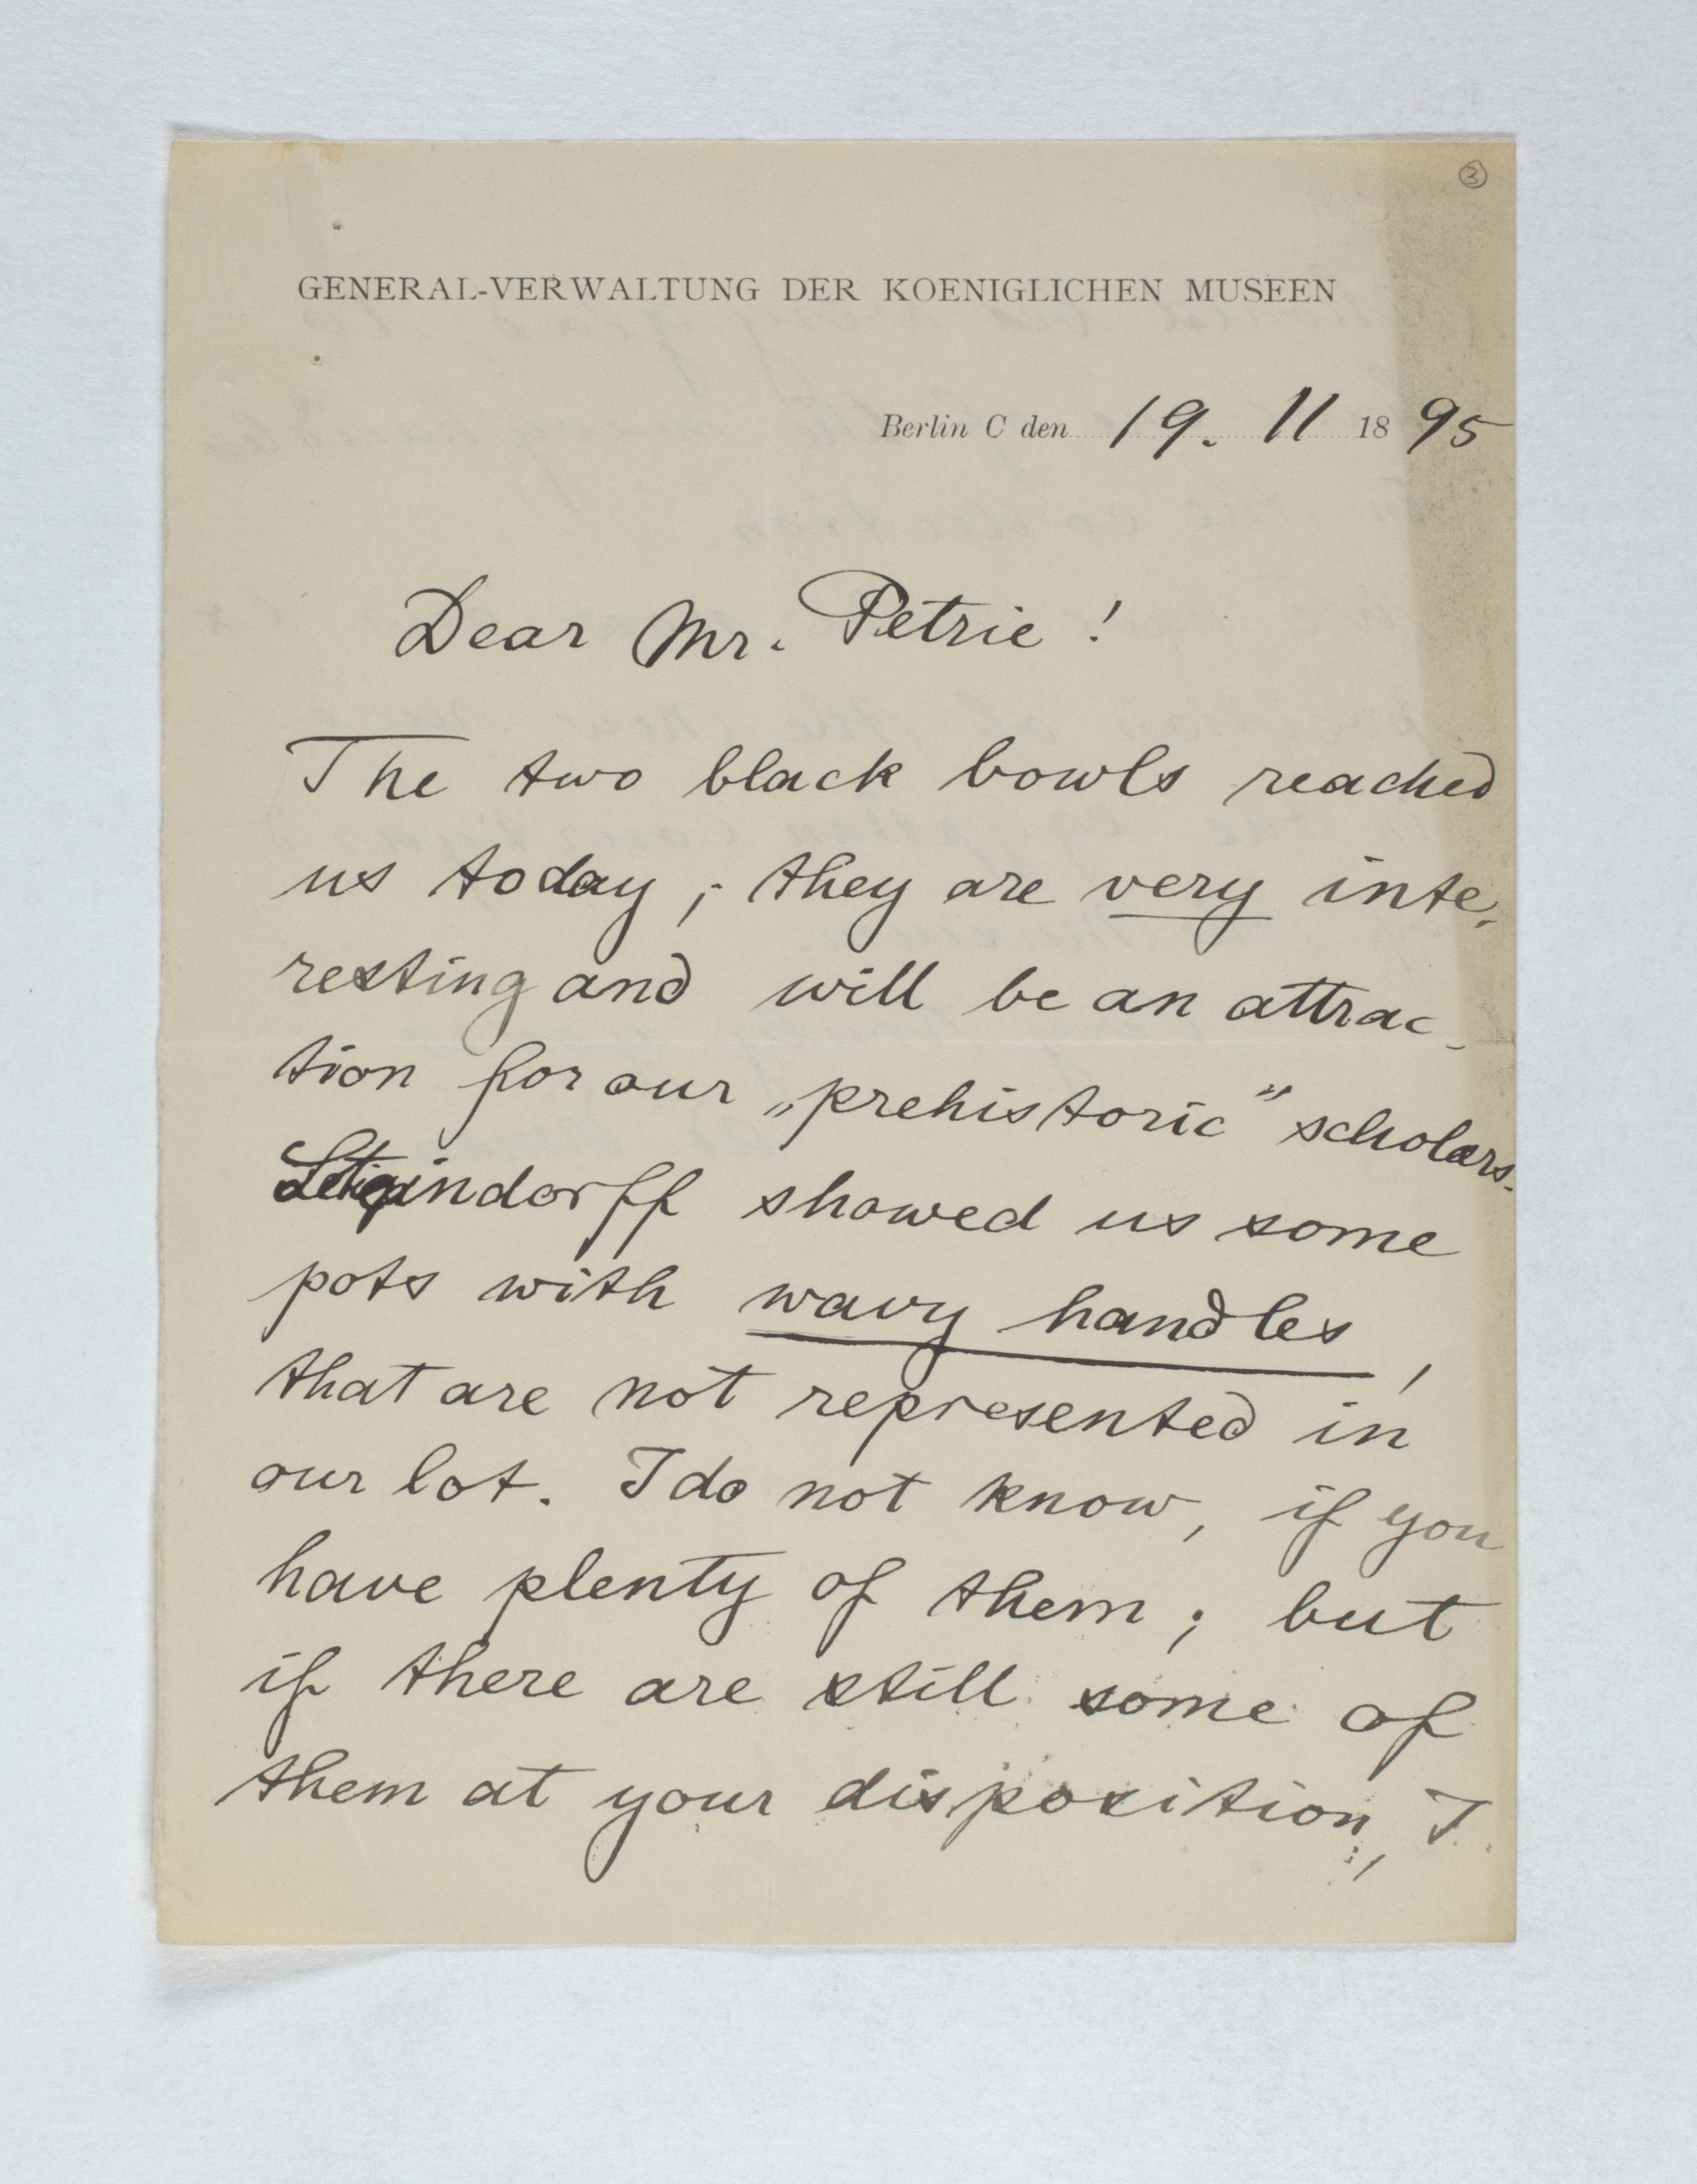 ③
GENERAL-VERWALTUNG DER KOENIGLICHEN MUSEEN
Berlin C den 19. 11 1895
Dear Mr. Petrie !
The two black bowls reached
us today ; they are very inte-
resting and will be an attrac-
tion for our „prehistoric“ scholars.
Steindorff showed us some
pots with wavy handles,
that are not represented in
our lot. I do not know, if you
have plenty of them ; but
if there are still some of
them at your disposition, I